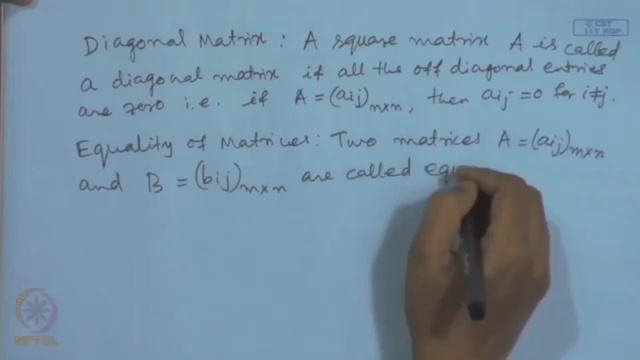 © CET
I.I.T. KGP
Diagonal Matrix : A square matrix A is called
a diagonal matrix if all the off diagonal entries
are zero i.e. if A = (aij)n×n, then aij = 0 for i≠j.
Equality of Matrices: Two matrices A = (aij)m×n
and B = (bij)m×n are called equ
NPTEL